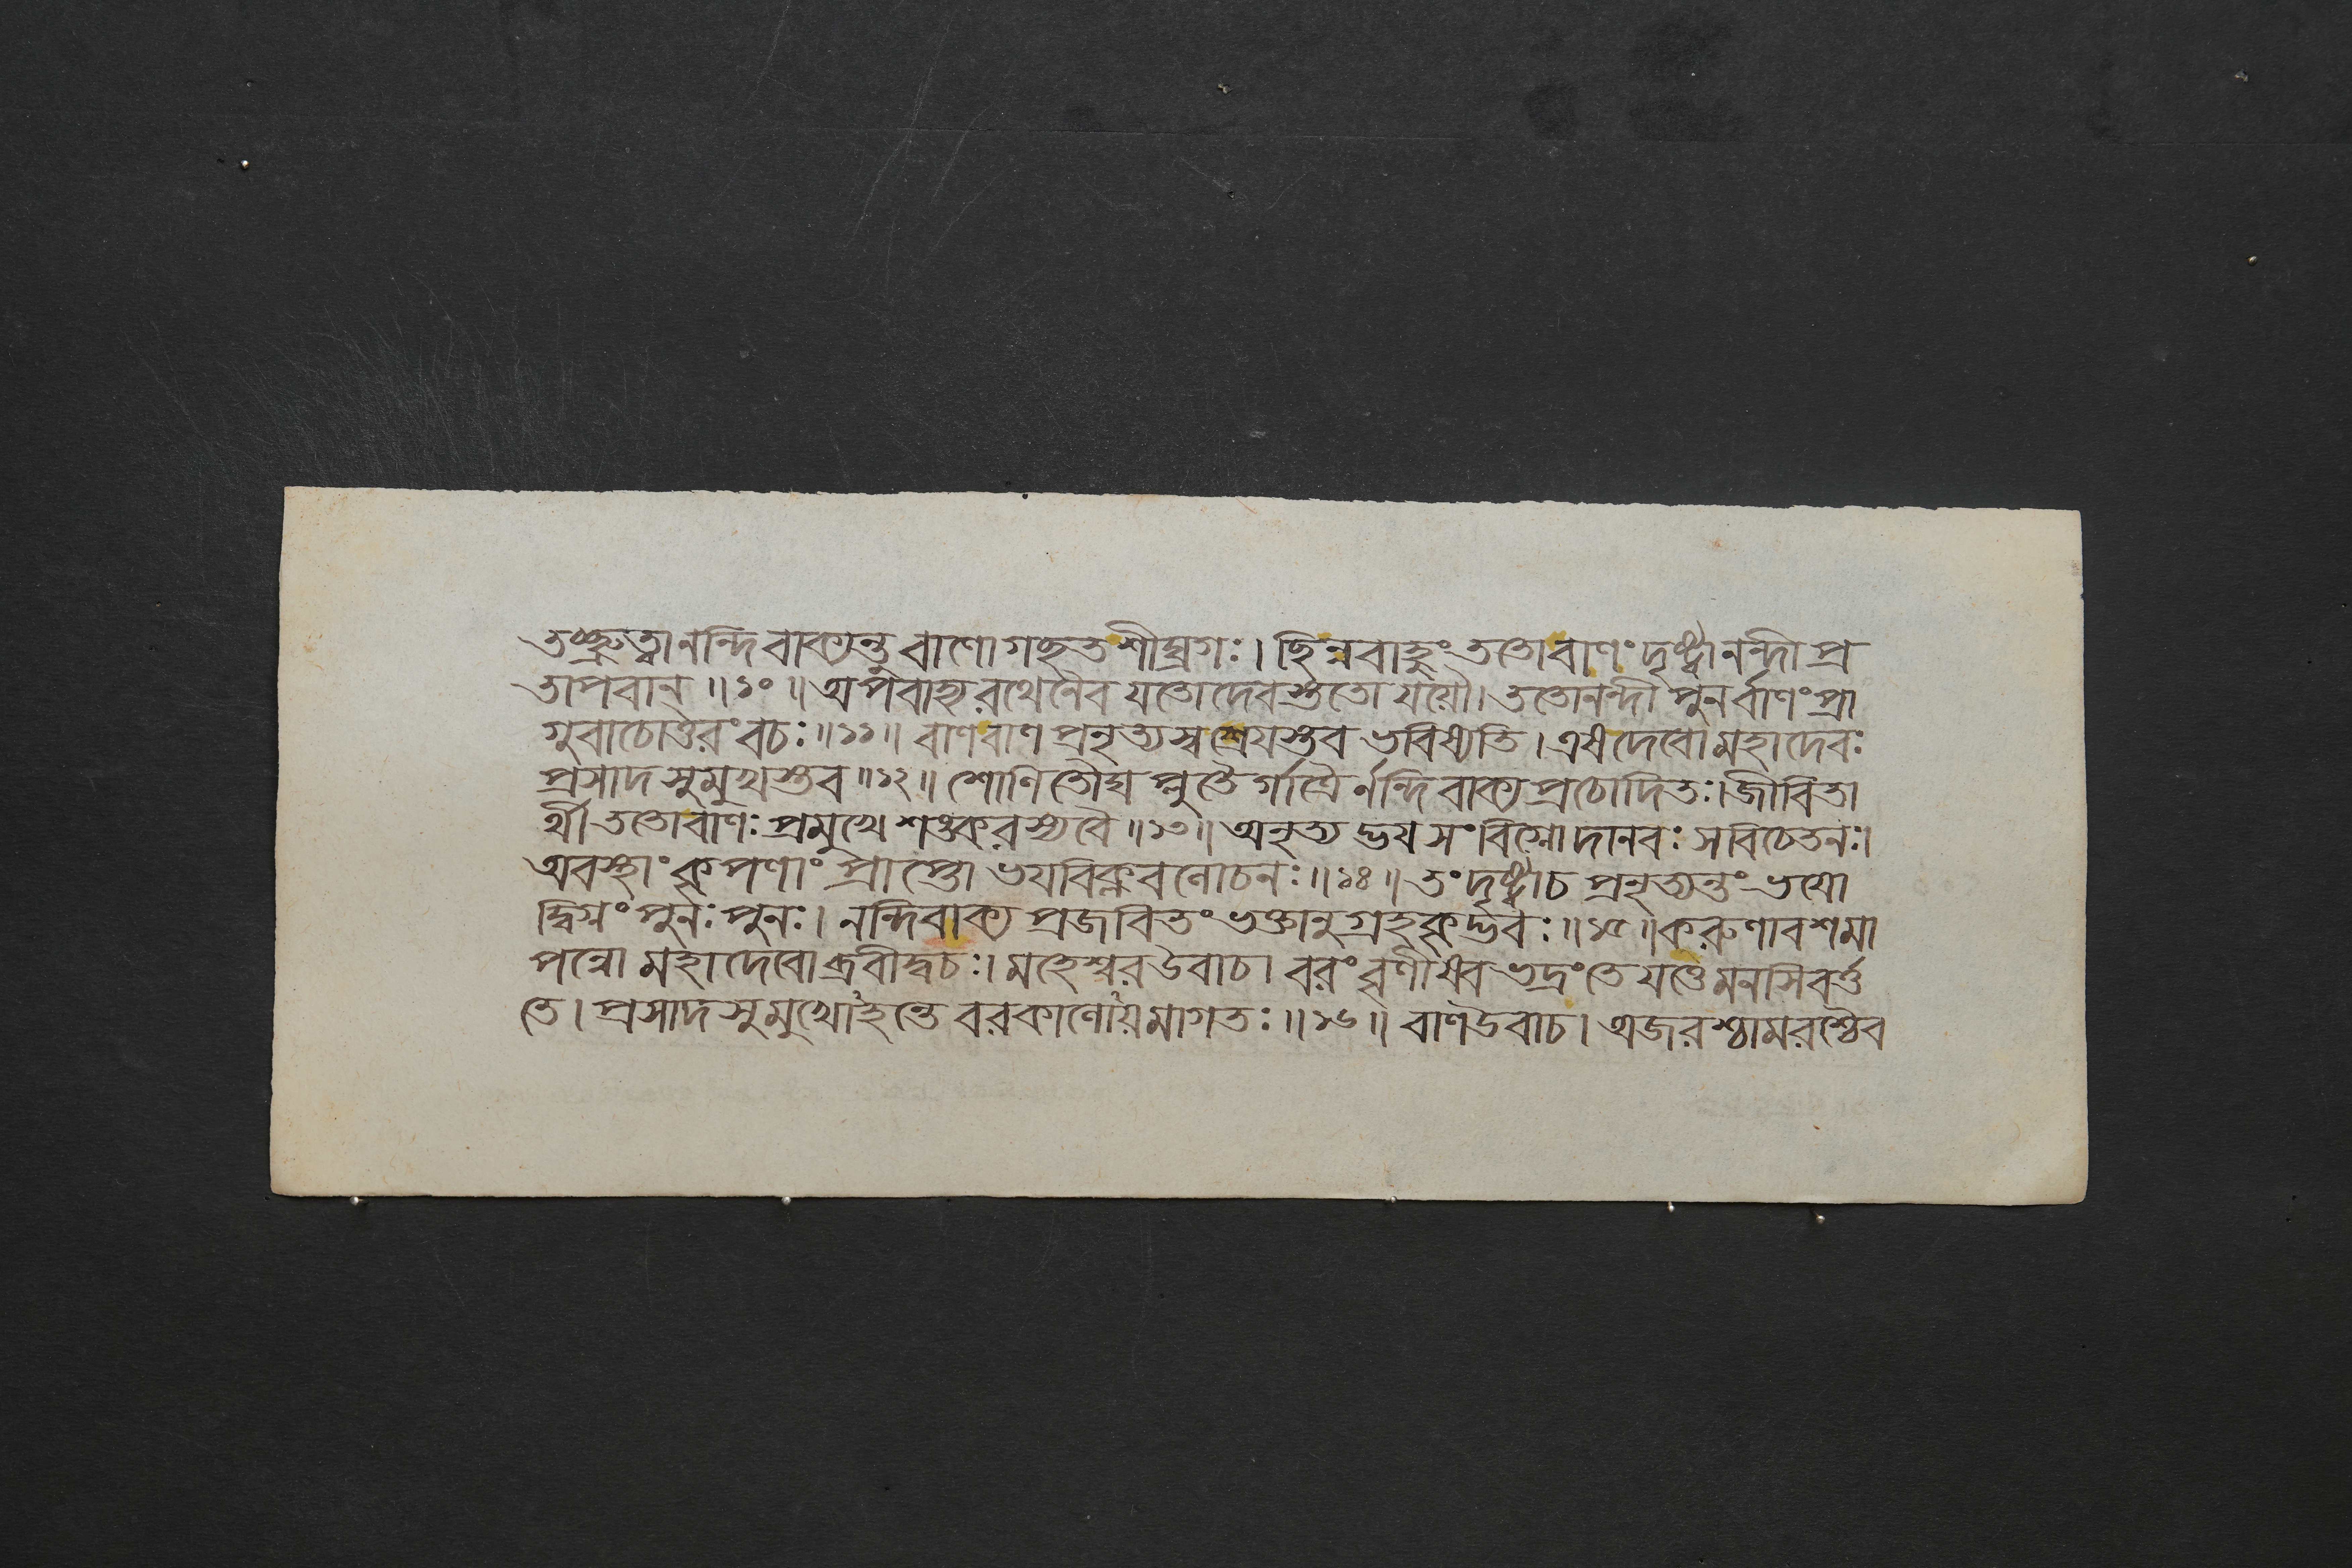 তচ্ছ্রুত্বানন্দিবাক্যন্তু বাণোগছতশীঘ্রগঃ। ছিন্নবাহুং ততোবাণং দৃষ্ট্বানন্দী প্র
তাপবান্ ॥১০॥ অপবাহ্য রথেনৈব যতোদেবস্ততো যযৌ। ততোনন্দী পুনর্বাণং প্রা
গুবাচোত্তরং বচঃ॥১১॥ বাণবাণ প্রনৃত্যস্ব শ্রেয়স্তব ভবিষ্যতি। এষদেবোমহাদেবঃ
প্রসাদসুমুখস্তব॥১২॥ শোণিতৌঘ প্লুতৈর্গাত্রৈর্নন্দিবাক্যপ্রচোদিতঃ।জীবিতা
র্থী ততোবাণঃ প্রমুখে শঙ্করস্যবৈ॥১৩॥ অনৃত্যদ্ভয়সংবিগ্নোদানবঃ সবিচেতনঃ।
অবস্থাং কৃপণাং প্রাপ্তো ভয়বিক্লবলোচনঃ॥১৪॥ তং দৃষ্ট্বাচ প্রনৃত্যন্তং ভয়ো
দ্বিগ্নং পুনঃ পুনঃ। নন্দিবাক্য প্রজবিতং ভক্তানুগ্রহকৃদ্ভবঃ॥১৫॥করুণাবশমা
পন্নো মহাদেবো ব্রবীদ্বচঃ। মহেশ্বরউবাচ। বরং বৃণীষ্ববভদ্রং তে যত্তেমনসিবর্ত্ত
তে। প্রসাদসুমুখোহন্তে বরকালোয়মাগতঃ॥১৬॥ বাণউবাচ। অজরশ্চামরশ্চৈব